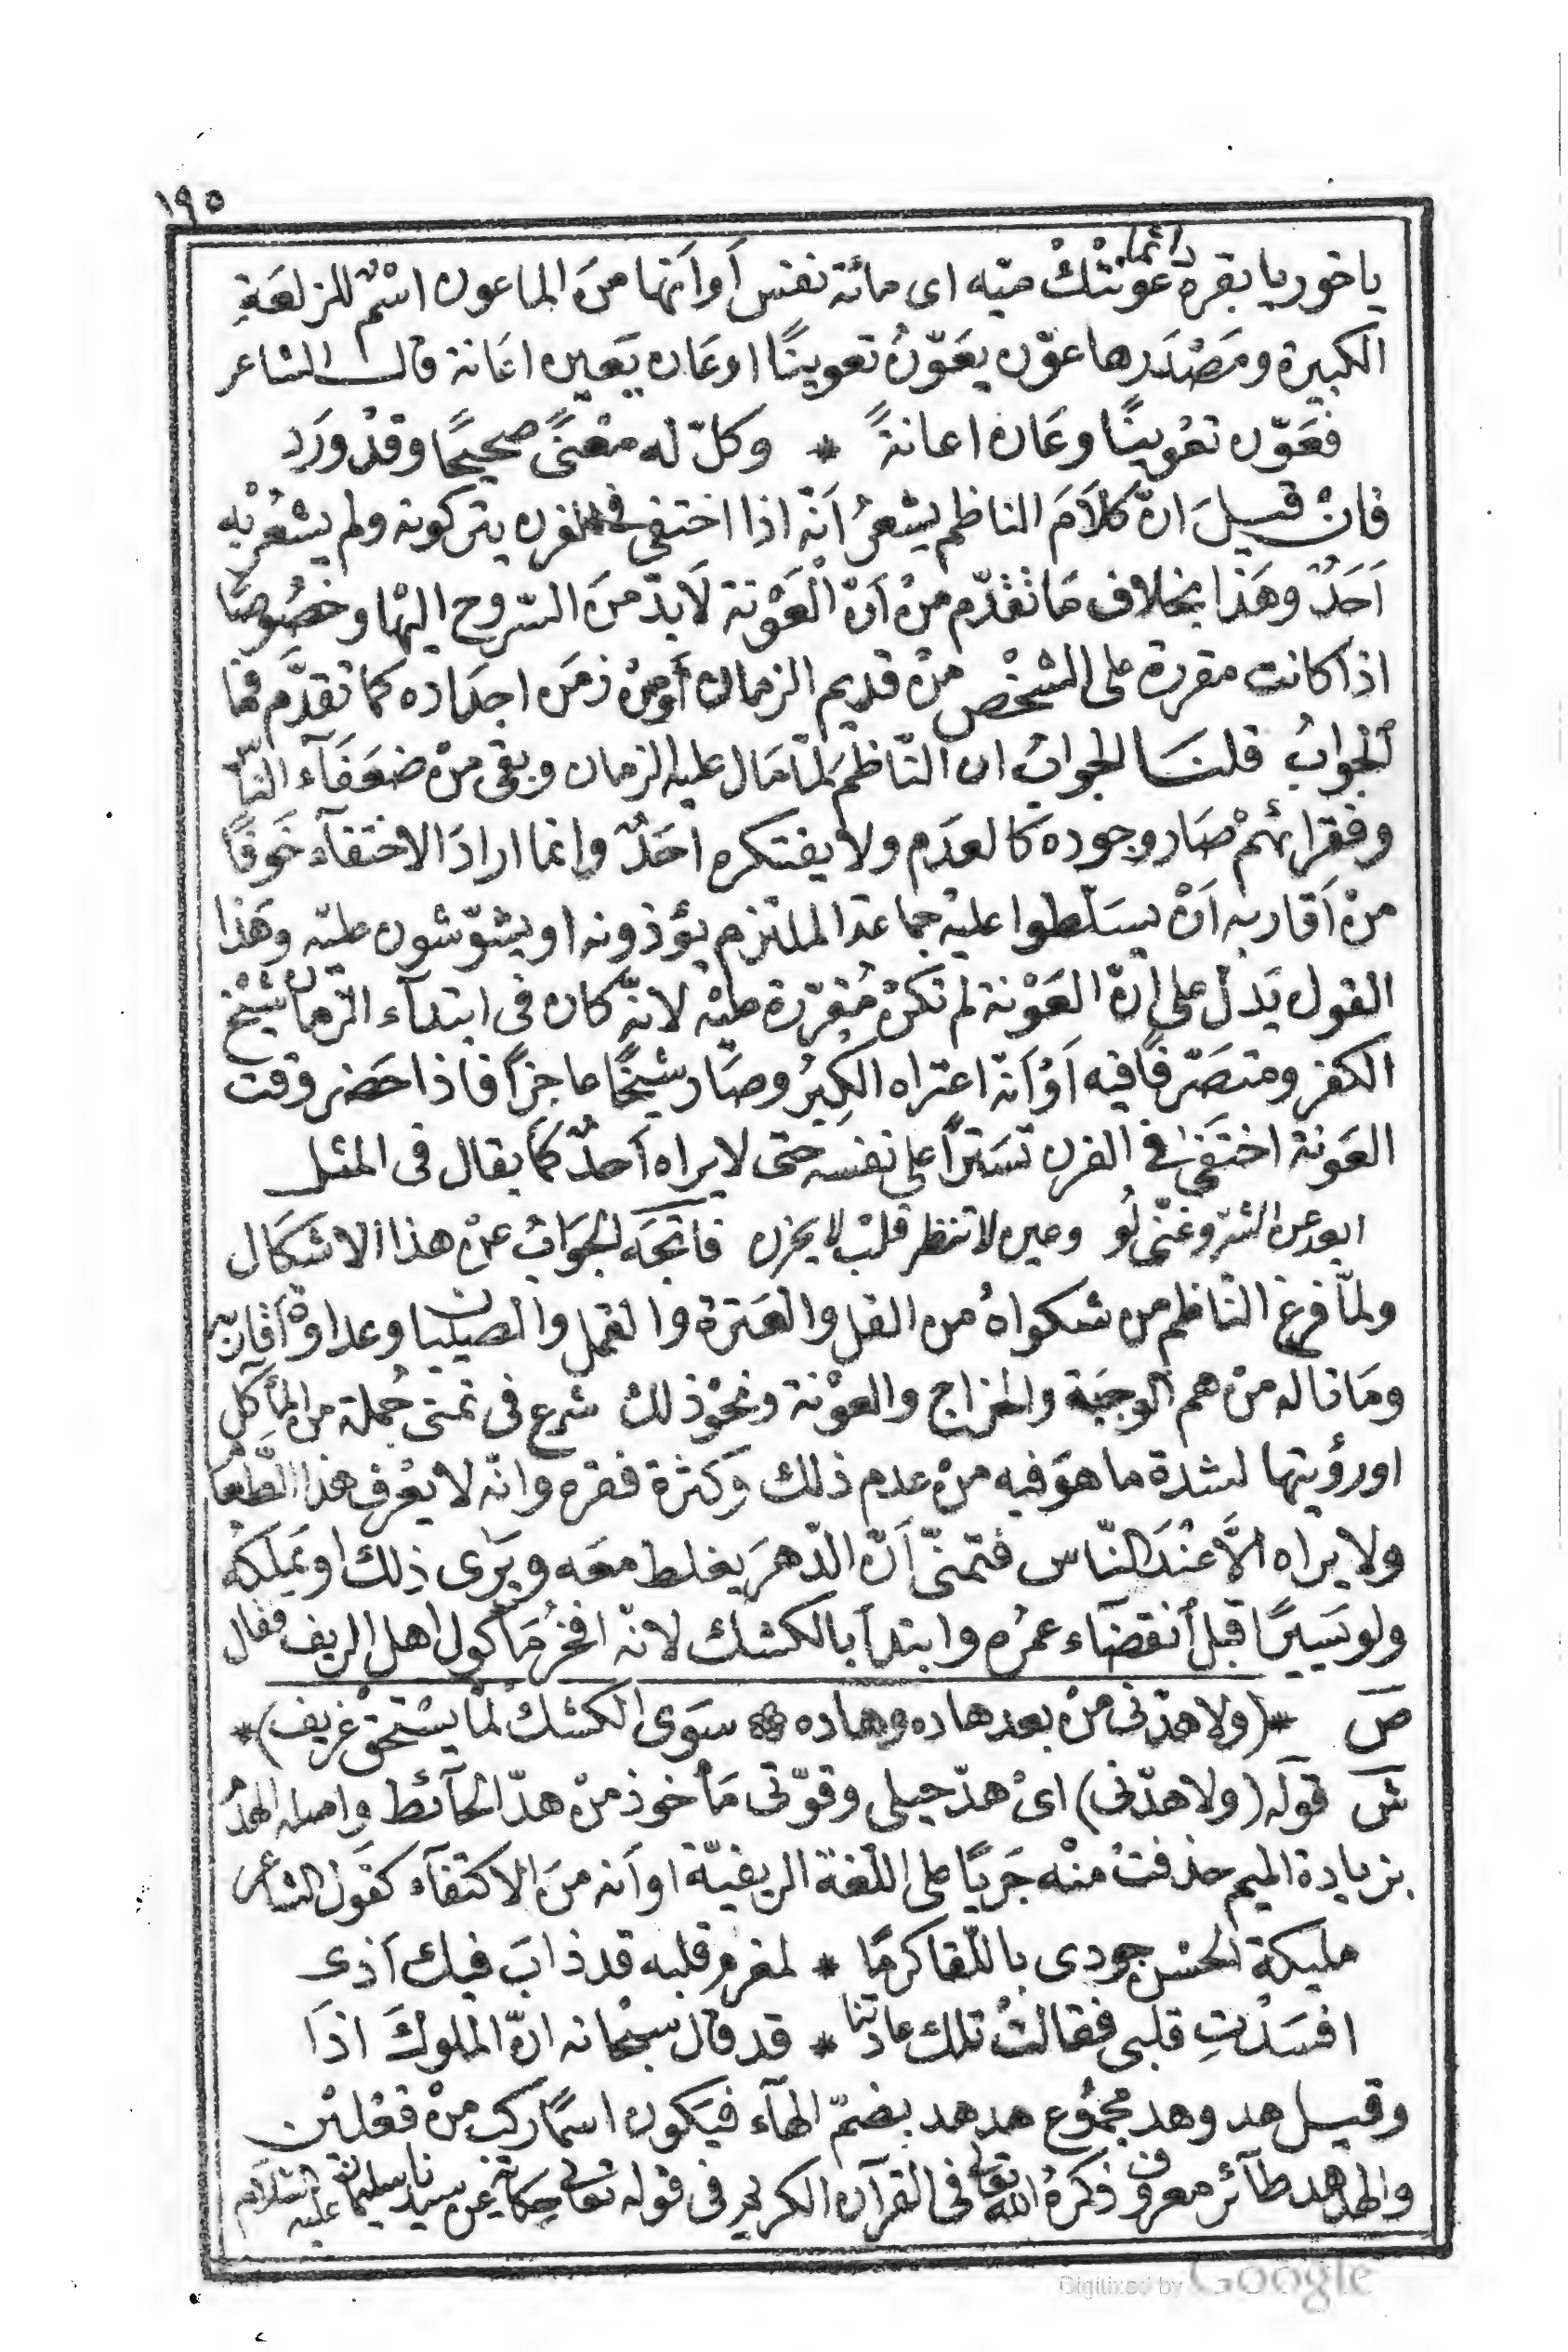 ١٩٥
ياخور يا بقرة دائما عونتك ميّه اى مائة نفس أوأنها منَ الماعون اسْمٌ للزلعَةِ
الكبيرة ومَصْدَرها عوّن يعَوّنُ تعوينًا اوعَان يَعين اعَانة قال الشاعر
فعَوّن تعْوينًا وعَان اعانةً * وكلّ له معْنىً صحيحًا وقدْ ورَد
فانْ قيلَ انّ كلاَمَ الناظم يشعرُ أنّه اذا اختفى فى الفرن يتركونه ولم يشعُرْ به
أحَدٌ وهَذا بخلاف مَا تقدّم منْ أنّ الْعَوْنة لاَبدّ منَ السّروح اليْها وخصُوصًا
اذا كانت مقررة على الشخْص منْ قديم الزمان أومنْ زمَن اجدَاده كما تقدّم فما
الجوابُ قلنَا الجوابُ ان النّاظمْ لمّا مَال عليه الزمان وبقى منْ ضعَفَآء النّا
وفقرائهمْ صَار وجوده كالعدَم ولا يفتكره احَدٌ وانما ارادَ الاختفآء خَوفًا
منْ أقاربه أنْ يسَلّطوا عليْه جماعة الملتزم يؤذونه اويشوّشون عليْه وهَذا
القول يَدلّ على انّ العَوْنة لم تكنْ مُقرّرة عليْه لانّه كان فى ابتدآء الزمان شيْخ
الكفر ومتصَرّفًا فيه أوْ أنّه اعتراه الكِبرُ وصَار شيْخًا عاجزًا فاذا حَضر وقت
العَونة اختَفى فى الفرن تسَترًا على نفسه حتى لا يراه أحدٌ كما يقال فى المثل
ابعد عن الشرّ وغنّى لُو وعين لا تنظر قلبْ لا يحزن فاتجَه الجوَابُ عنْ هذا الاشكَال
ولمّا فرغ النّاظم من شكواهُ من القل والعَترة والقمل والصيبان وعداوةْ أقاربه
ومَا ناله منْ هم الوجبَة والخراج والعوْنة ونحْو ذلك شرع فى تمنى جُملة من المآكل
اورؤيتها لشدة ما هوَ فيه منْ عدم ذلك وَكثرة فقره وانّه لا يعْرف هذا الطّعَا
ولا يراه الاَّ عنْدَ النّاس فتمنّى أنّ الدّهرَ يغلط معَه ويَرَى ذلِك اويَملكهُ
ولو يَسيرًا قبل أنقضَآء عمُره وابتدأ بالكشك لانّه افخرُ مَأكول اهل الريف فقال
صَ *(ولا هدّنى منْ بعد هاده وهاده سوَى الكشك لمّا يسْتحقْ غريف)*
شَ قولَه (ولا هدّنى) اىْ هدّ حيلى وقوّتى مَأخوذ منْ هدّ الحآئط واصله الهدْمُ
بزيادة الميم حذفتْ منْه جَريًا على اللّغة الريفيّة اوأنه منَ الاكتفآء كقوَل الشاعر
مليكة الحسْن جودى باللّقا كرمًا * لمغرم قلبه قد ذابَ فيك أذى
افسَدْتِ قلبى فقالتْ تلك عادتنا * قد قال سبحانه انّ الملوكَ اذَا
وقيل هد وهد مجمُوع هدهد بضمّ الهآء فيَكون اسمًا ركب منْ فعْليْن
والهدهد طآئر معروف ذكرهُ الله تعالى فى القرآن الكريم فى قوله تعالى حكاية عن سيّدنا سليمان عليه السّلام
Digitized by Google